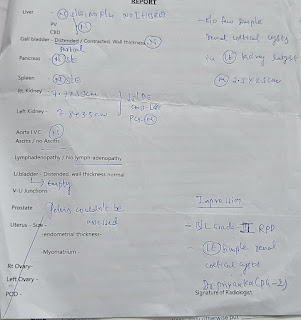 REPORT
Liver - (N) size NO IHBRD
PV
CBD (N)
Gall bladder - Distended / Contracted. Wall thickness (N)
Partial
Pancreas (N) SE
Spleen (N) SE
Rt. Kidney - 9.7 cm
Left Kidney -
PCS (N)
Aorta I.V.C. (N)
Ascites / no Ascitis
Lymphadenopathy / No lymph-adenopathy
U.bladder - Distended, wall thickness normal
↳ Empty
V-U Junctions
Prostate
Pelvis couldn't be
assessed
Uterus - Size -
-endometrial thickness-
-Myomatrium -
Rt Ovary-
Left Ovary-
POD -
e/o few simple
renal cortical cysts
in (Lt) kidney largest
(M) 2.5 x 2.5 cm
Impression
- B/L Grade II RPD
- (Lt) simple renal
cortical cysts
Dr. Priyanka (PG-2)
Signature of Radiologist